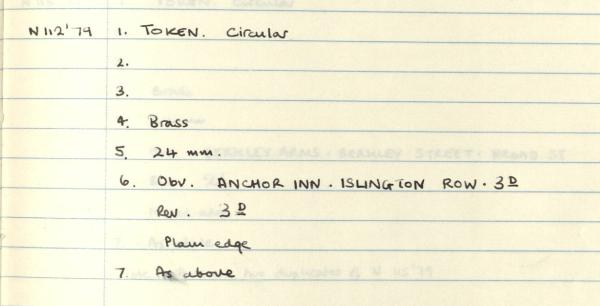 N112'79 1. TOKEN. Circular
2.
3.
4. Brass
5. 24 mm.
6. Obv. ANCHOR INN · ISLINGTON ROW · 3D
Rev. 3D
Plain edge
7. As above